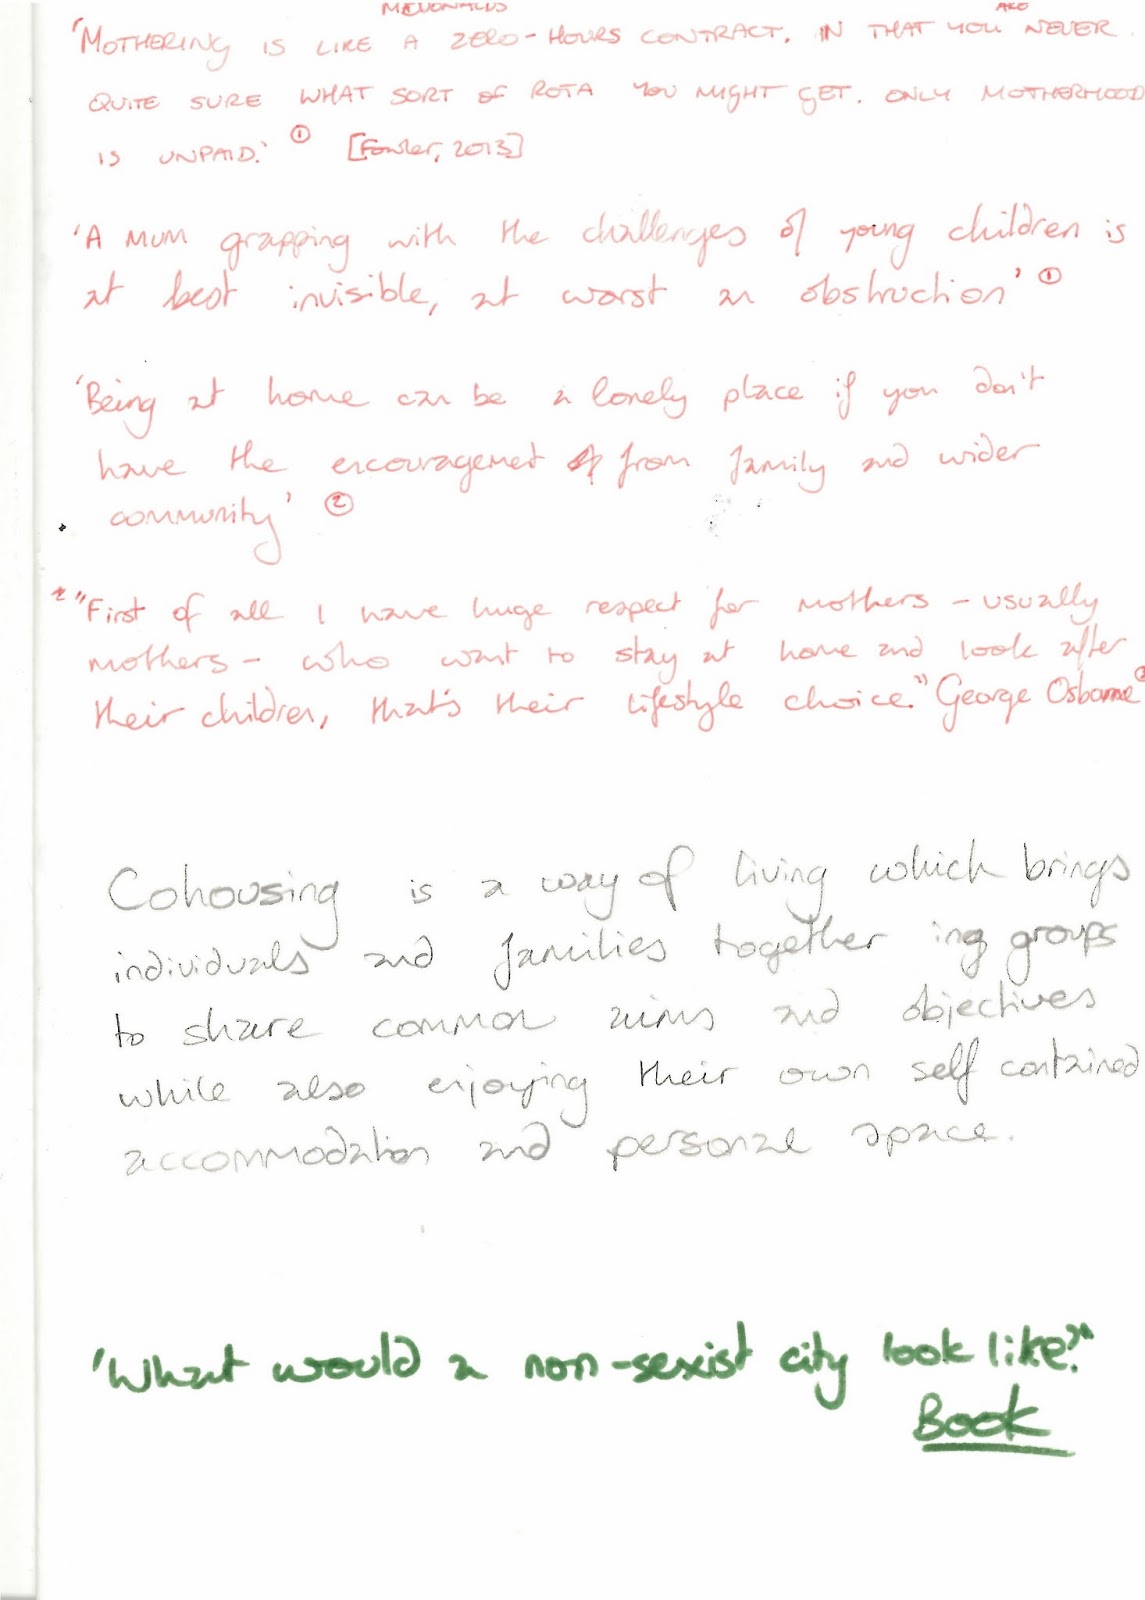 McDONALDS ARE
'MOTHERING IS LIKE A ZERO-HOURS CONTRACT, IN THAT YOU NEVER
QUITE SURE WHAT SORT OF ROTA YOU MIGHT GET. ONLY MOTHERHOOD
IS UNPAID.' ① [Fowler, 2013]
'A MUM grapping with the challenges of young children is
at best invisible, at worst an obstruction' ①
'Being at home can be a lonely place if you don't
have the encouragemet from family and wider
community' ②
"First of all I have huge respect for mothers - usually
mothers - who want to stay at home and look after
their children, that's their lifestyle choice." George Osborne ②
Cohousing is a way of living which brings
individuals and families together ing groups
to share common aims and objectives
while also enjoying their own self contained
accommodation and personal space.
'What would a non-sexist city look like?"
Book